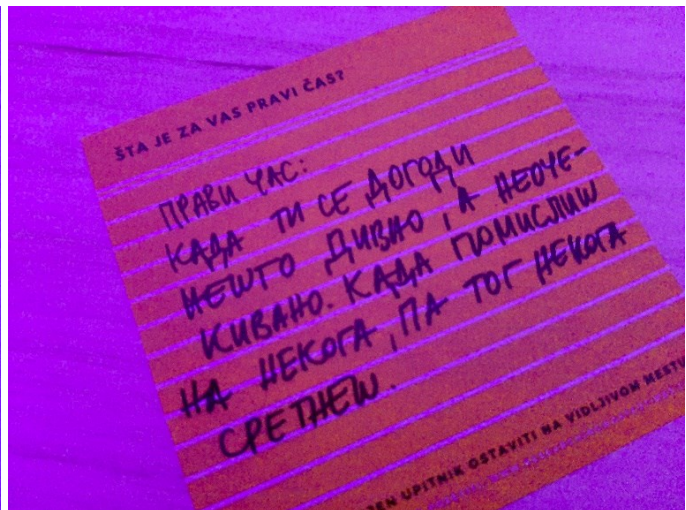 ŠTA JE ZA VAS PRAVI ČAS?
ПРАВИ ЧАС:
КАДА ТИ СЕ ДОГОДИ
НЕШТО ДИВНО, А НЕОЧЕ-
КИВАНО. КАДА ПОМИСЛИШ
НА НЕКОГА, ПА ТОГ НЕКОГА
СРЕТНЕШ.
UPITNIK OSTAVITI NA VIDLJIVOM MESTU